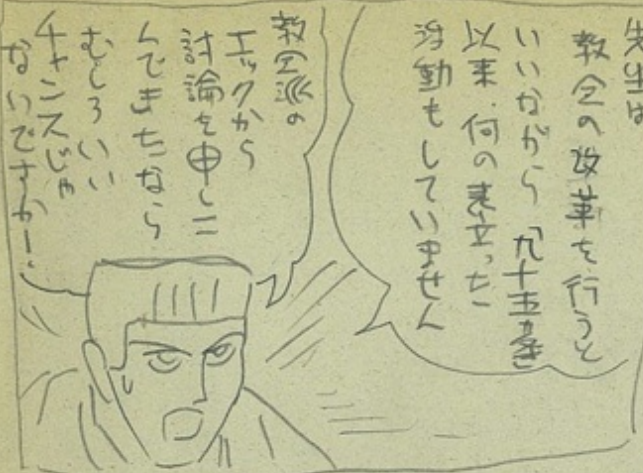 先生は
教会の改革を行うと
いいながら「九十五ヶ条」
以来、何の表立った
活動もしていません
教会派の
エックから
討論を申しこ
んできたなら
むしろいい
チャンスじゃ
ないですかー。